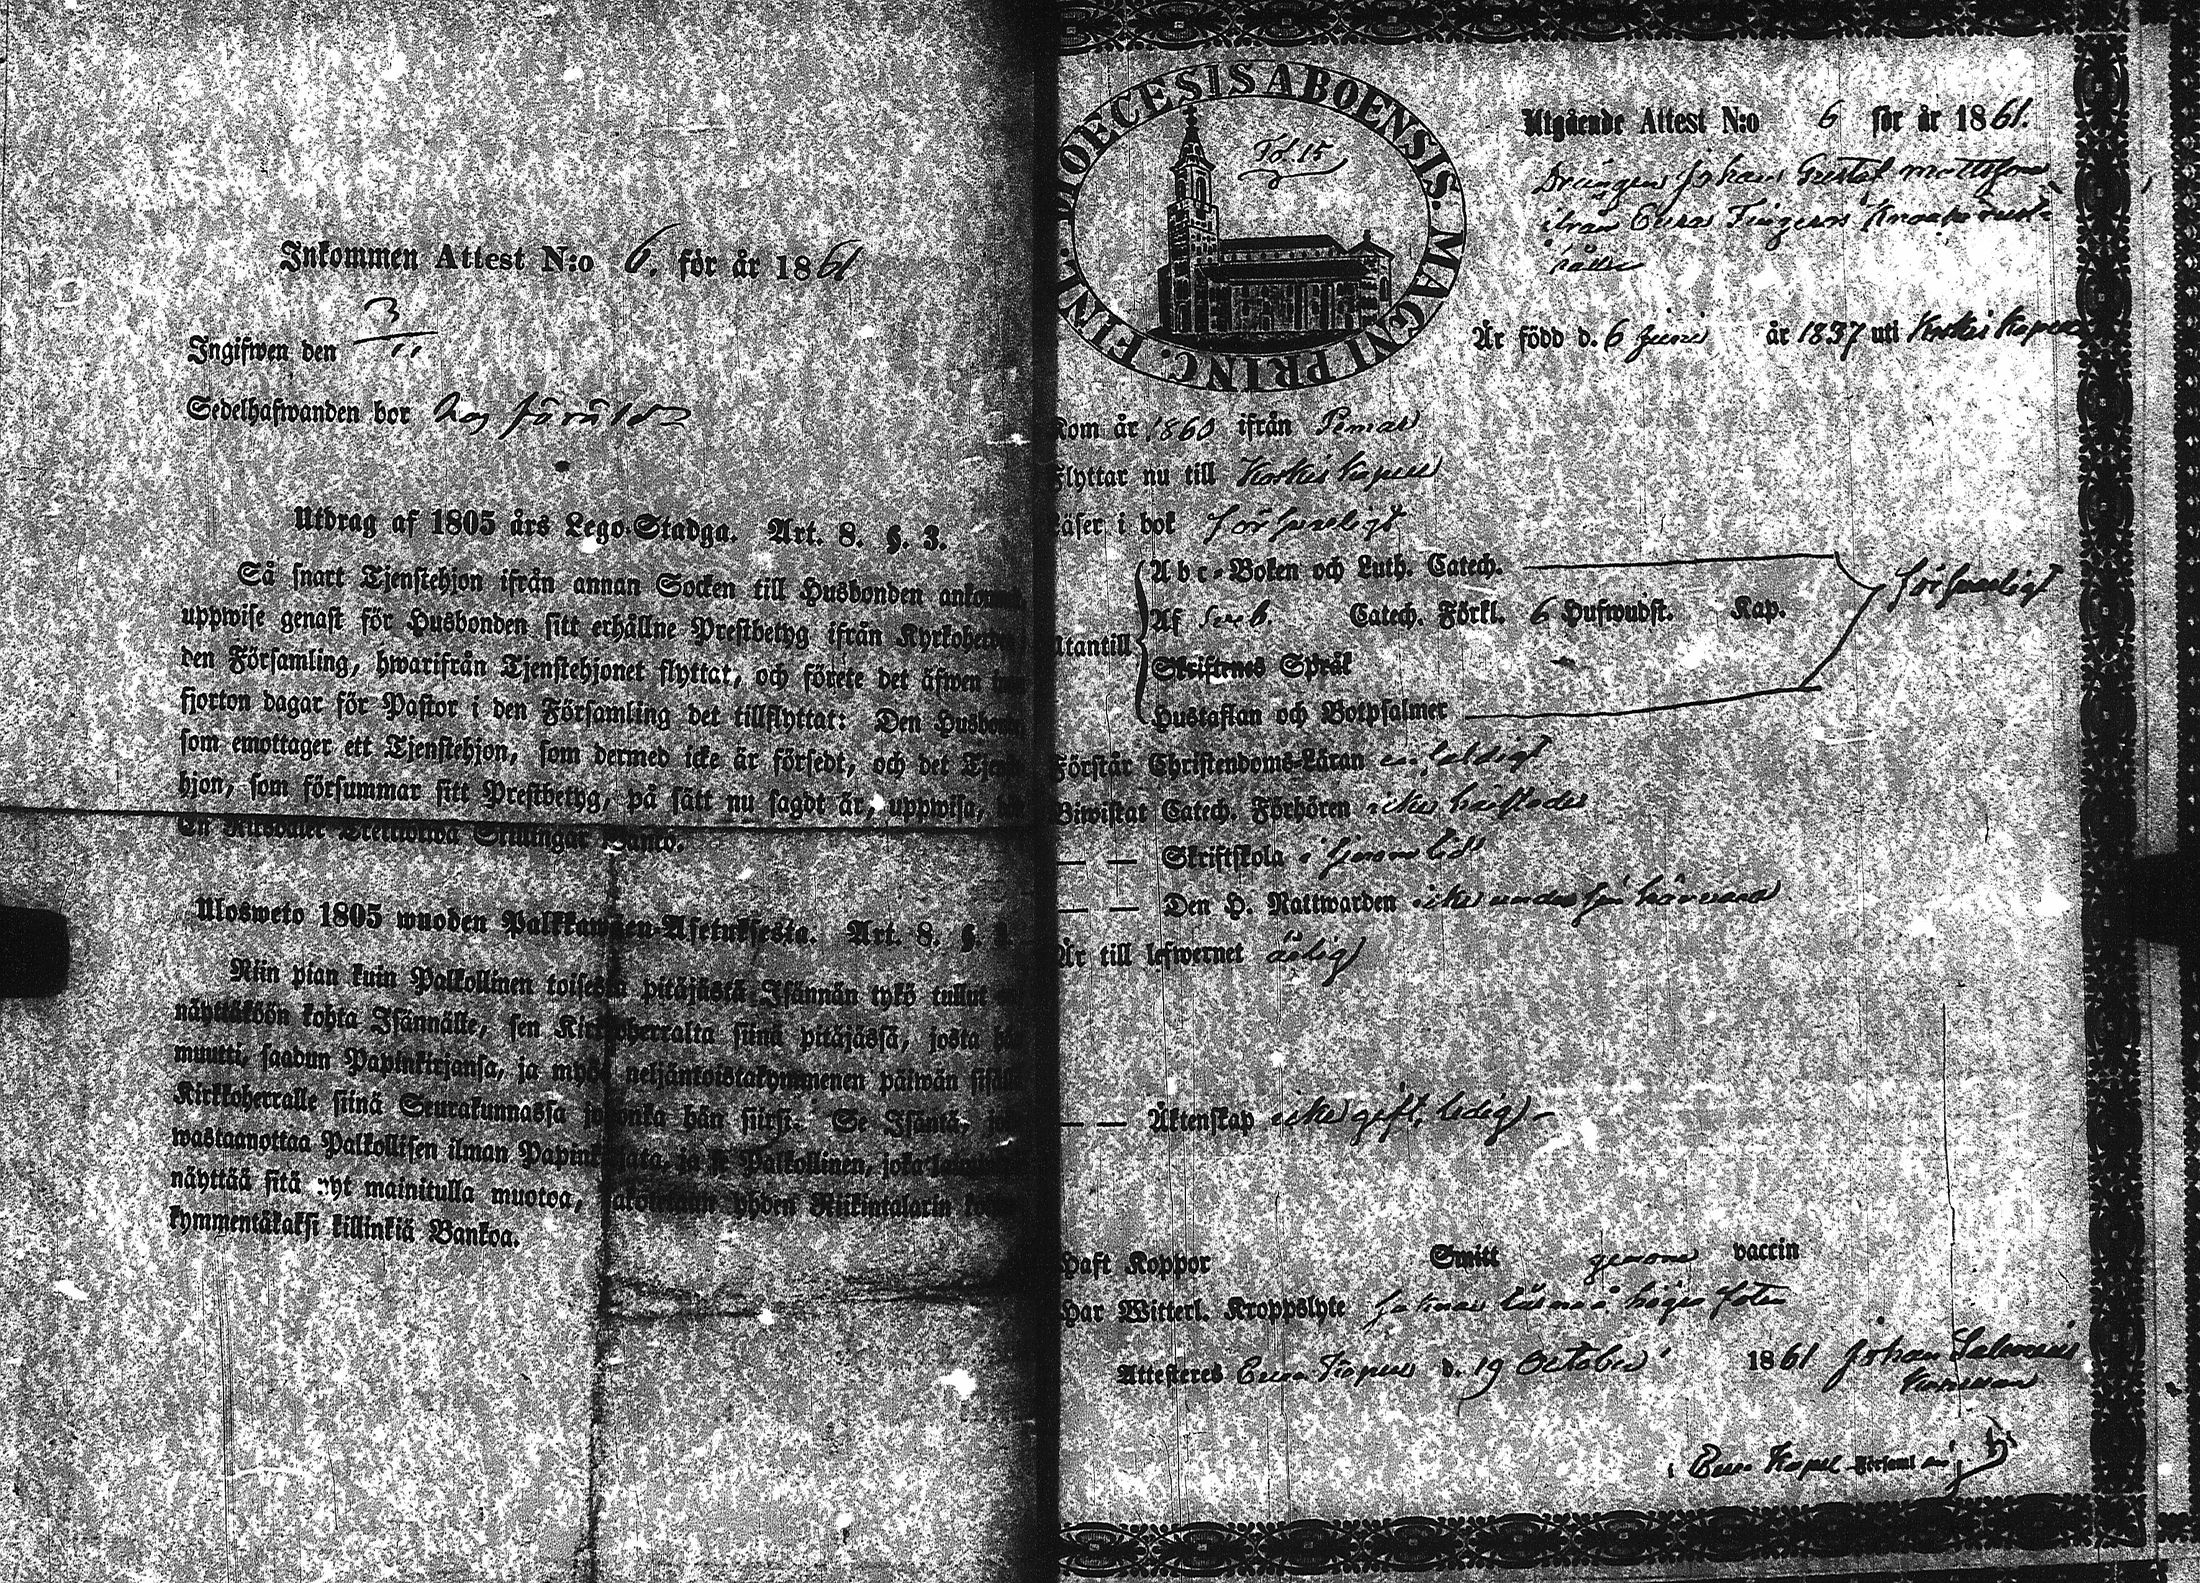 Inkommen Attest N:o 6. för år 1861
Ingifwen den 3/11
Sedelhafwanden bor hos
Utdrag af 1805 års Lego-Stadga. Art. 8. §. 3.
Så snart Tjenstehjon ifrån annan Socken till Husbonden
uppwise genast för Husbonden sitt erhållne Prestbetyg ifrån
den Församling, hwarifrån Tjenstehjonet flyttat, och förete det äfwen
fjorton dagar för Pastor i den Församling det tillflyttat: Den
som emottager ett Tjenstehjon, som dermed icke är försedt, och det
hjon, som försummar sitt Prestbetyg, på sätt nu sagdt är, uppwisa,
En Riksdaler Trettiotwå Skillingar Banko.
Ulosweto 1805 wuoden Palkkawäen-Asetuksesta. Art. 8. §.
Niin pian kuin Palkollinen toisesta pitäjästä Isännän tykö tullut
näyttäköön kohta Isännälle, sen Kirkkoherralta siinä pitäjässä, josta
muutti, saadun Papinkirjansa, ja myös neljäntoistakymmenen päiwän
Kirkkoherralle siinä Seurakunnassa johonka hän siirsi. Se Isäntä,
wastaanottaa Palkollisen ilman Papinkirjata, ja se Palkollinen, joka
näyttää sitä nyt mainitulla muotoa, yhden Riikintalarin
kymmentäkaksi killinkiä Bankoa.
DIOECESIS ABOENSIS. MAGNI PRINC. FINL.
Fol. 15
Utgående Attest N:o 6 för år 1861.
Drängen Johan Gustaf Mattsson
ifrån Eura
håll
Är född d. 6 Juni år 1837 uti Koskis Kapell
Kom år 1860 ifrån Pemar
Flyttar nu till Koskis Kapell
Läser i bok försvarligt
Utantill
Abc-Boken och Luth. Catech.
Af Sveb. Catech. Förkl. 6 Hufwudst. Kap.
försvarligt
Skriftenes Språk
Hustaflan och Botpsalmer
Förstår Christendoms-Läran enfaldigt
Biwistat Catech. Förhören icke härstädes
— — Skriftskola
— — Den H. Nattwarden icke under sin härvaro
Är till lefwernet ärlig
— — Äktenskap icke gift, ledig
Haft Koppor Smitt genom vaccin
Har Witterl. Kroppslyte högra foten
Attesteres Eura Kapell d. 19 October 1861 Johan Salmenius
i Eura Kapell Församl